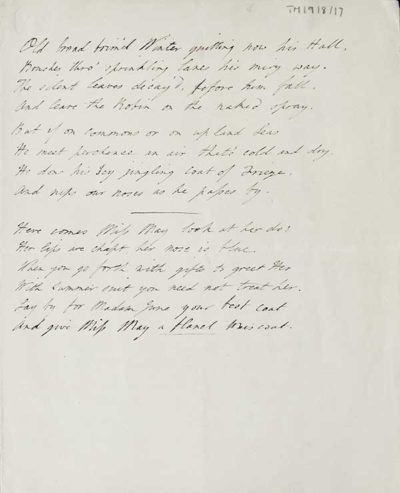 TM1918/17
Old broad brim'd Winter quitting now his Hall,
Brushes thro' sprinkling lanes his miry way.
The silent leaves decay'd, before him fall.
And leave the Robin on the naked spray.
But if on commons or on upland leas
He meet perchance an air that's cold and dry
He dons his Icy jingling coat of frieze.
And nips our noses as he passes by.
Here comes Miss May look at her do!
Her lips are chapt her nose is blue.
When you go forth with gifts to greet Her
With Summer suit you need not treat her.
Lay by for Madam June your best coat
And give Miss May a flanel waiscoat.